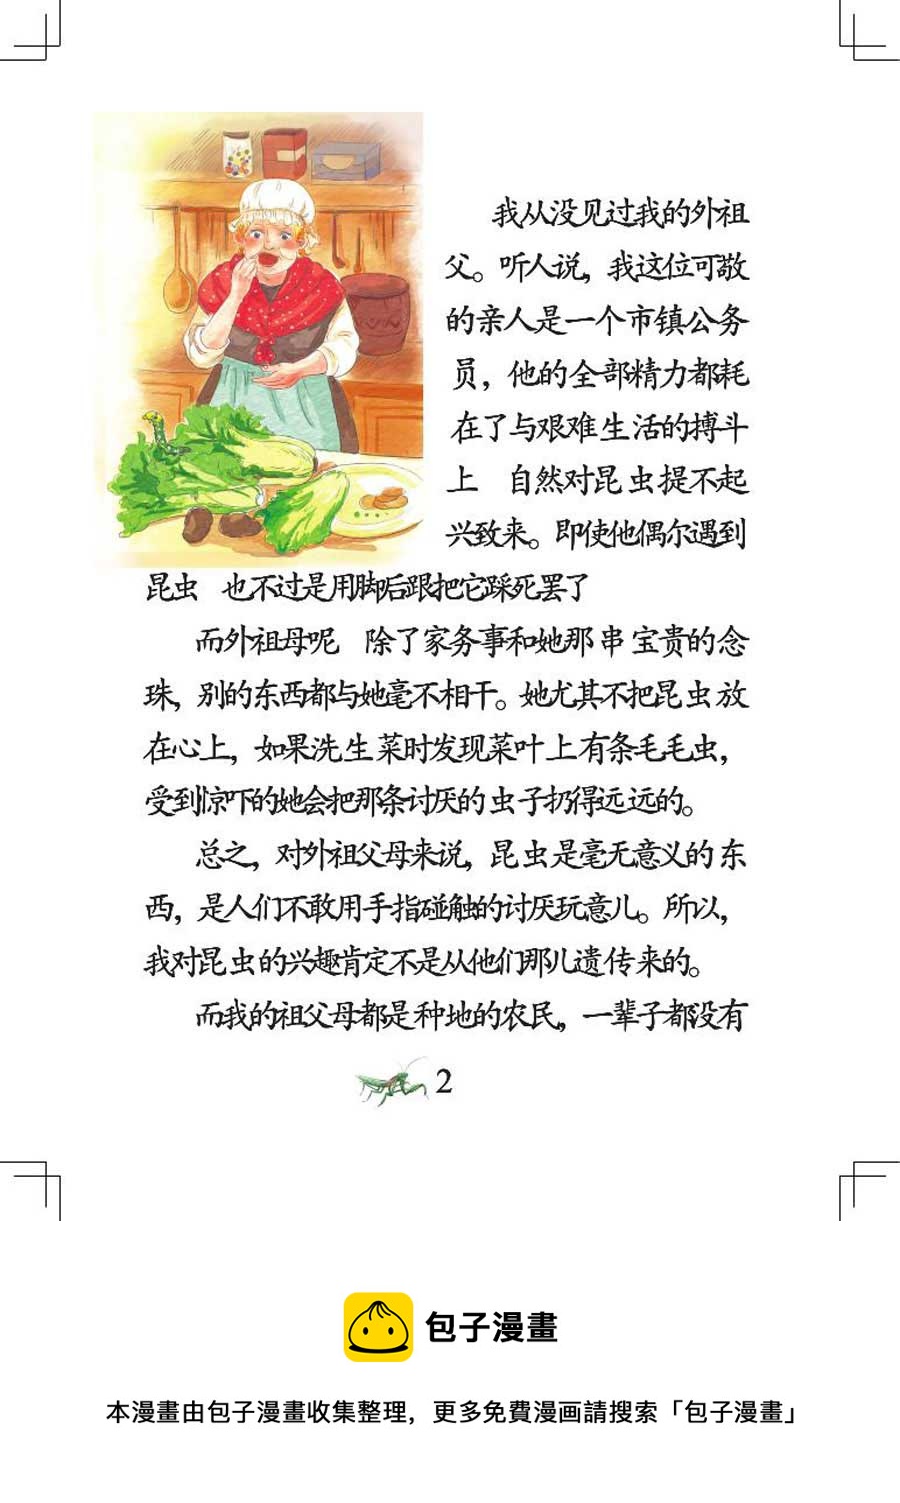 我从没见过我的外祖
父。听人说，我这位可敬
的亲人是一个市镇公务
员，他的全部精力都耗
在了与艰难生活的搏斗
上 自然对昆虫提不起
兴致来。即使他偶尔遇到
昆虫 也不过是用脚后跟把它踩死罢了
而外祖母呢 除了家务事和她那串宝贵的念
珠，别的东西都与她毫不相干。她尤其不把昆虫放
在心上，如果洗生菜时发现菜叶上有条毛毛虫，
受到惊吓的她会把那条讨厌的虫子扔得远远的。
总之，对外祖父母来说，昆虫是毫无意义的东
西，是人们不敢用手指碰触的讨厌玩意儿。所以，
我对昆虫的兴趣肯定不是从他们那儿遗传来的。
而我的祖父母都是种地的农民，一辈子都没有
2
包子漫畫
本漫畫由包子漫畫收集整理，更多免費漫画請搜索「包子漫畫」